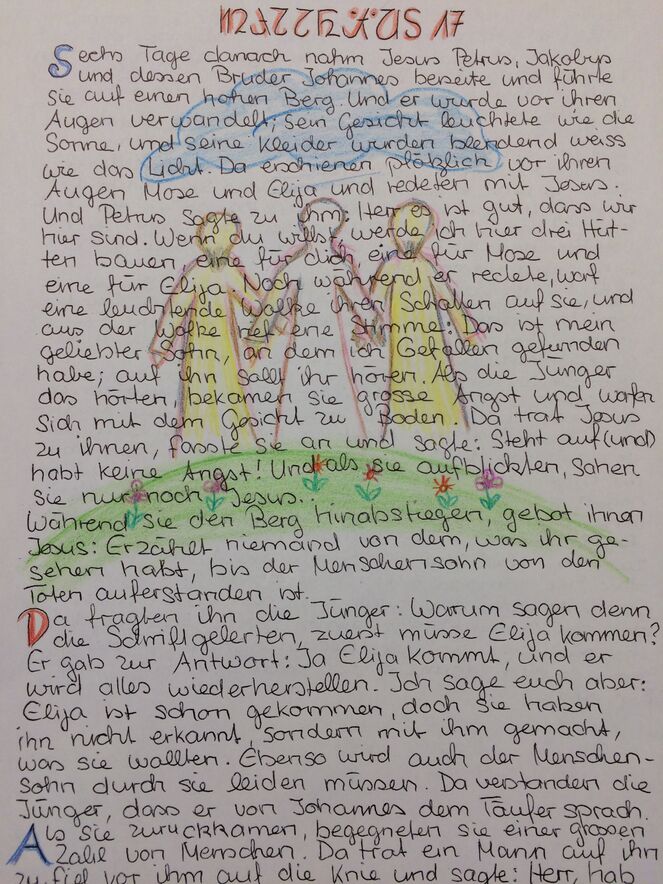 MATTHÄUS 17
Sechs Tage danach nahm Jesus Petrus, Jakobus
und dessen Bruder Johannes beiseite und führte
sie auf einen hohen Berg. Und er wurde vor ihren
Augen verwandelt; sein Gesicht leuchtete wie die
Sonne, und seine Kleider wurden blendend weiss
wie das Licht. Da erschienen plötzlich vor ihren
Augen Mose und Elija und redeten mit Jesus.
Und Petrus sagte zu ihm: Herr es ist gut, dass wir
hier sind. Wenn du willst, werde ich hier drei Hüt-
ten bauen, eine für dich eine für Mose und
eine für Elija. Noch während er redete, warf
eine leuchtende Wolke ihren Schatten auf sie, und
aus der Wolke rief eine Stimme: Das ist mein
geliebter Sohn, an dem ich Gefallen gefunden
habe; auf ihn sollt ihr hören. Als die Jünger
das hörten, bekamen sie grosse Angst und warfen
sich mit dem Gesicht zu Boden. Da trat Jesus
zu ihnen, fasste sie an und sagte: Steht auf (und)
habt keine Angst! Und als sie aufblickten, sahen
sie nur noch Jesus.
Während sie den Berg hinabstiegen, gebot ihnen
Jesus: Erzählt niemand von dem, was ihr ge-
sehen habt, bis der Menschensohn von den
Toten auferstanden ist.
Da fragten ihn die Jünger: Warum sagen denn
die Schriftgelerten, zuerst müsse Elija kommen?
Er gab zur Antwort: Ja Elija kommt, und er
wird alles wiederherstellen. Ich sage euch aber:
Elija ist schon gekommen, doch sie haben
ihn nicht erkannt, sondern mit ihm gemacht,
was sie wollten. Ebenso wird auch der Menschen-
sohn durch sie leiden müssen. Da verstanden die
Jünger, dass er von Johannes dem Täufer sprach.
Als sie zurückkamen, begegneten sie einer grossen
Zahl von Menschen. Da trat ein Mann auf ihn
zu, fiel vor ihm auf die Knie und sagte: Herr, hab